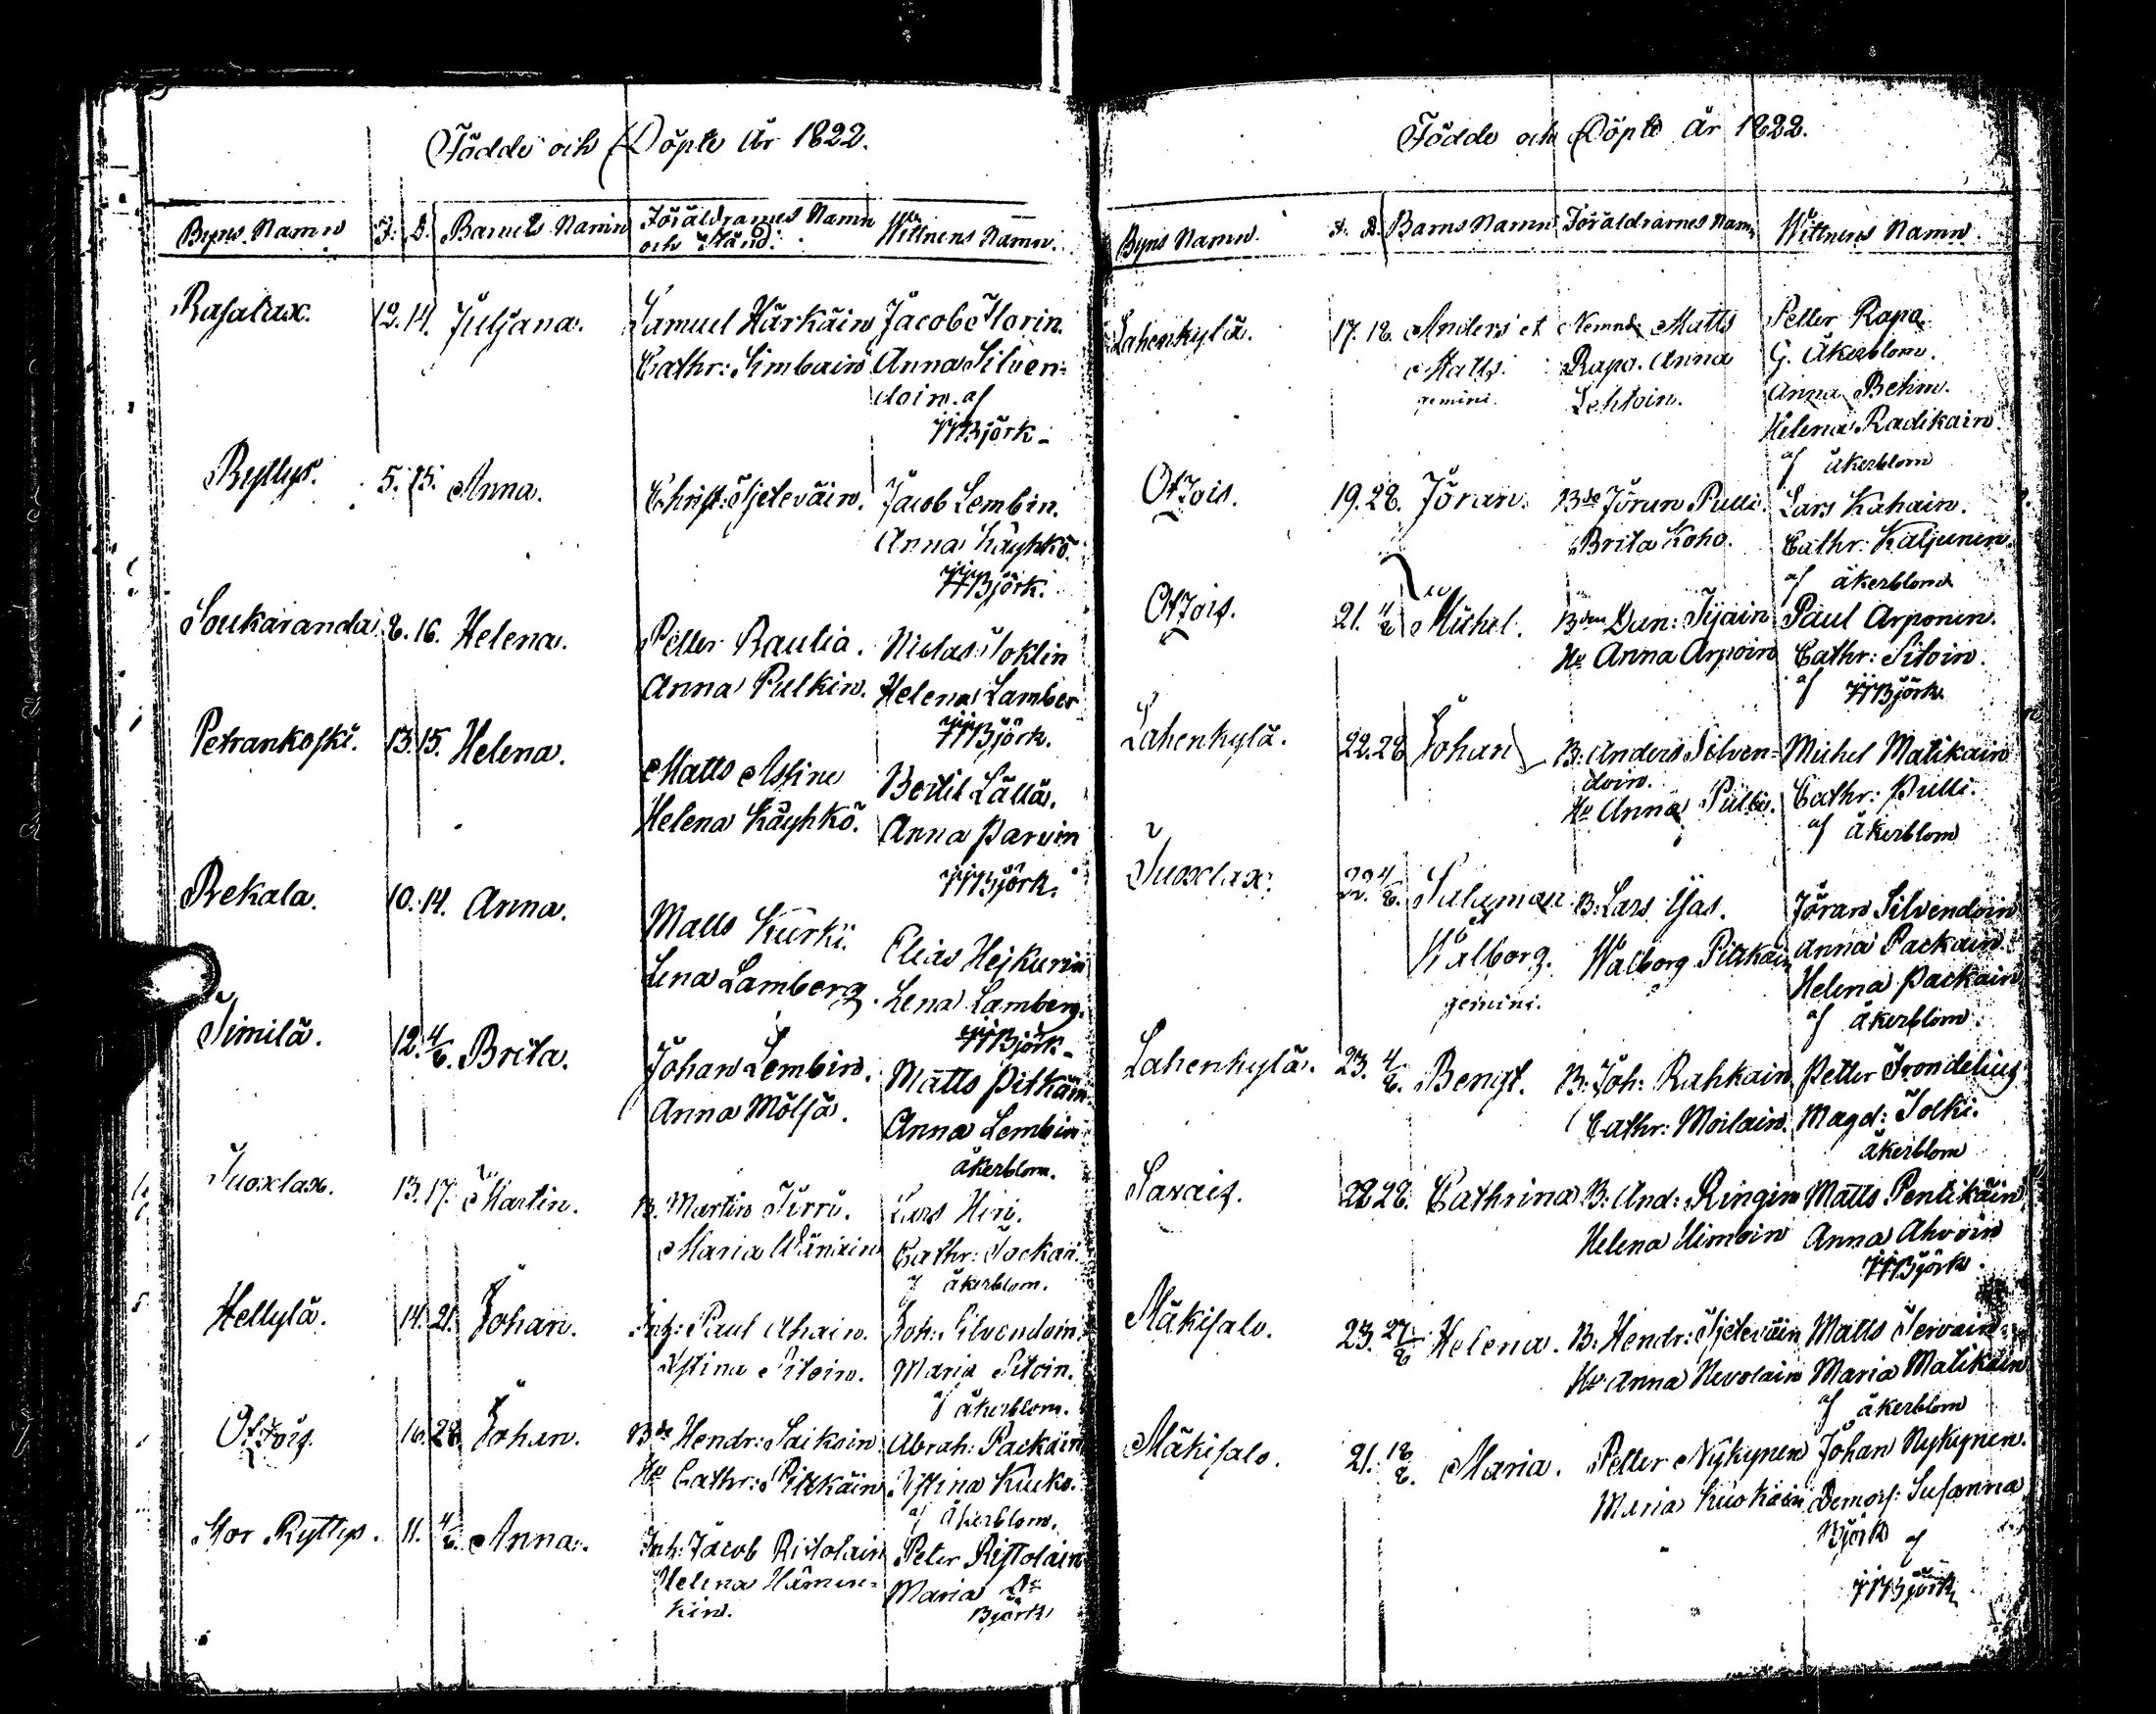 Födde och Döpte År 1822.
Byns Namn F. D. Barnets Namn Föräldrarnes Namn och Stånd. Wittnens Namn.
Rasalax. 12. 14. Juljana. Samuel Härkäin Jacob Florin.
Cathr: Simbain Anna Silven=
doin. af
JJBjörk
Ryttys. 5. 15. Anna. Christ: Tjeleväin. Jacob Lembin.
Anna Käyhkö.
JJBjörk.
Soukaranda 8. 16. Helena. Petter Raulia. Niclas Toklin
Anna Pulkin. Helena Lamber
JJBjörk.
Petrankoski. 13. 15. Helena. Matts Astine Bertil Lällä.
Helena Käyhkö. Anna Parvin
JJBjörk.
Rekala. 10. 14. Anna. Matts Kurki. Elias Hejkurin
Lena Lamberg. Lena Lamberg.
JJBjörk
Similä. 12. 4/6. Brita. Johan Lembin. Matts Pitkäin
Anna Mölsä. Anna Lembin
åkerblom.
Juoxlax. 13. 17. Martin. B. Martin Tirri. Lars Hiri.
Maria Wänäin Cathr: Tockai
af åkerblom.
Hellylä. 14. 21. Johan. Inh: Paul Ahain. Joh: Silvendoin.
Justina Sitoin. Maria Sitoin.
af åkerblom.
Otsois. 16. 28 Johan. Bde Hendr: Saikoin. Abrah: Packain
Hu Cathr: Pitkäin Justina Kuko.
af åkerblom.
Stor Ryttys. 11. 4/6. Anna. Inh: Jacob Ristolain Peter Ristolain
Helena Hämin= Maria Do
kin. Björk
Födde och Döpte År 1822.
Byns Namn. F. D. Barns Namn Föräldrarnes Namn Wittnens Namn
Lahenkylä. 17. 18. Anders et Nemnd: Matts Petter Rapo
Matts. Rapo. Anna G. Åkerblom.
gemini. Lehtoin. Anna Behm.
Helena Radikain.
af åkerblom
Otsois. 19. 28. Jöran. Bde Jöran Pulli. Lars Kahain.
Brita Koho. Cathr: Katjunen.
af åkerblom
Otsois. 21. 4/6 Michel. Bden Dan: Tijain Paul Arponin.
Hu Anna Arpoin Cathr: Sitoin.
af JJBjörk
Lahenkylä. 22. 28 Johan B: Anders Silven= Michel Matikain
doin.
Hu Anna Pulli. Cathr: Pulli.
af åkerblom
Juoxlax. 22. 4/6. Saluman B: Lars Ijas. Jöran Silvendoin
Walborg. Walborg Pitkäin Anna Packain.
gemini. Helena Packain
af åkerblom.
Lahenkylä. 23. 4/6. Bengt. B: Joh: Rahkain Petter Frondelius
Cathr: Moilain. Magd: Tolki.
åkerblom
Savais. 22 28. Cathrina B: And: Ringin Matts Pentikäin
Helena Himoin Anna Ahvoin
JJBjörk.
Mäkisalo. 23. 27/6 Helena. B: Hendr: Tjeleväin Matts Tervain
Hu Anna Nevolain Maria Matikain
af åkerblom
Mäkisalo. 21. 18/6. Maria. Petter Nykynen Johan Nykynen.
Maria Kuokain Demois: Susanna
Björk af
JJBjörk